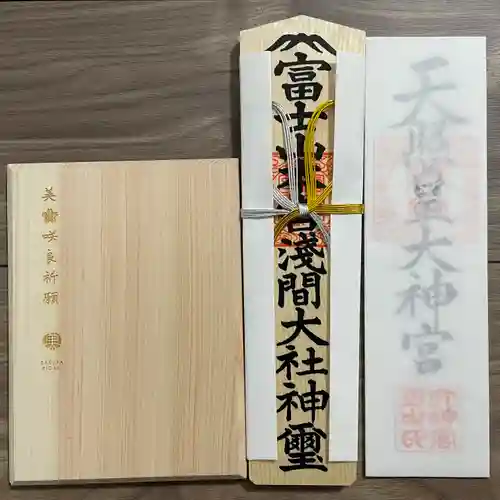 美霊咲良祈願
SAKURA
富士山本宮淺間大社神璽
天照皇大神宮